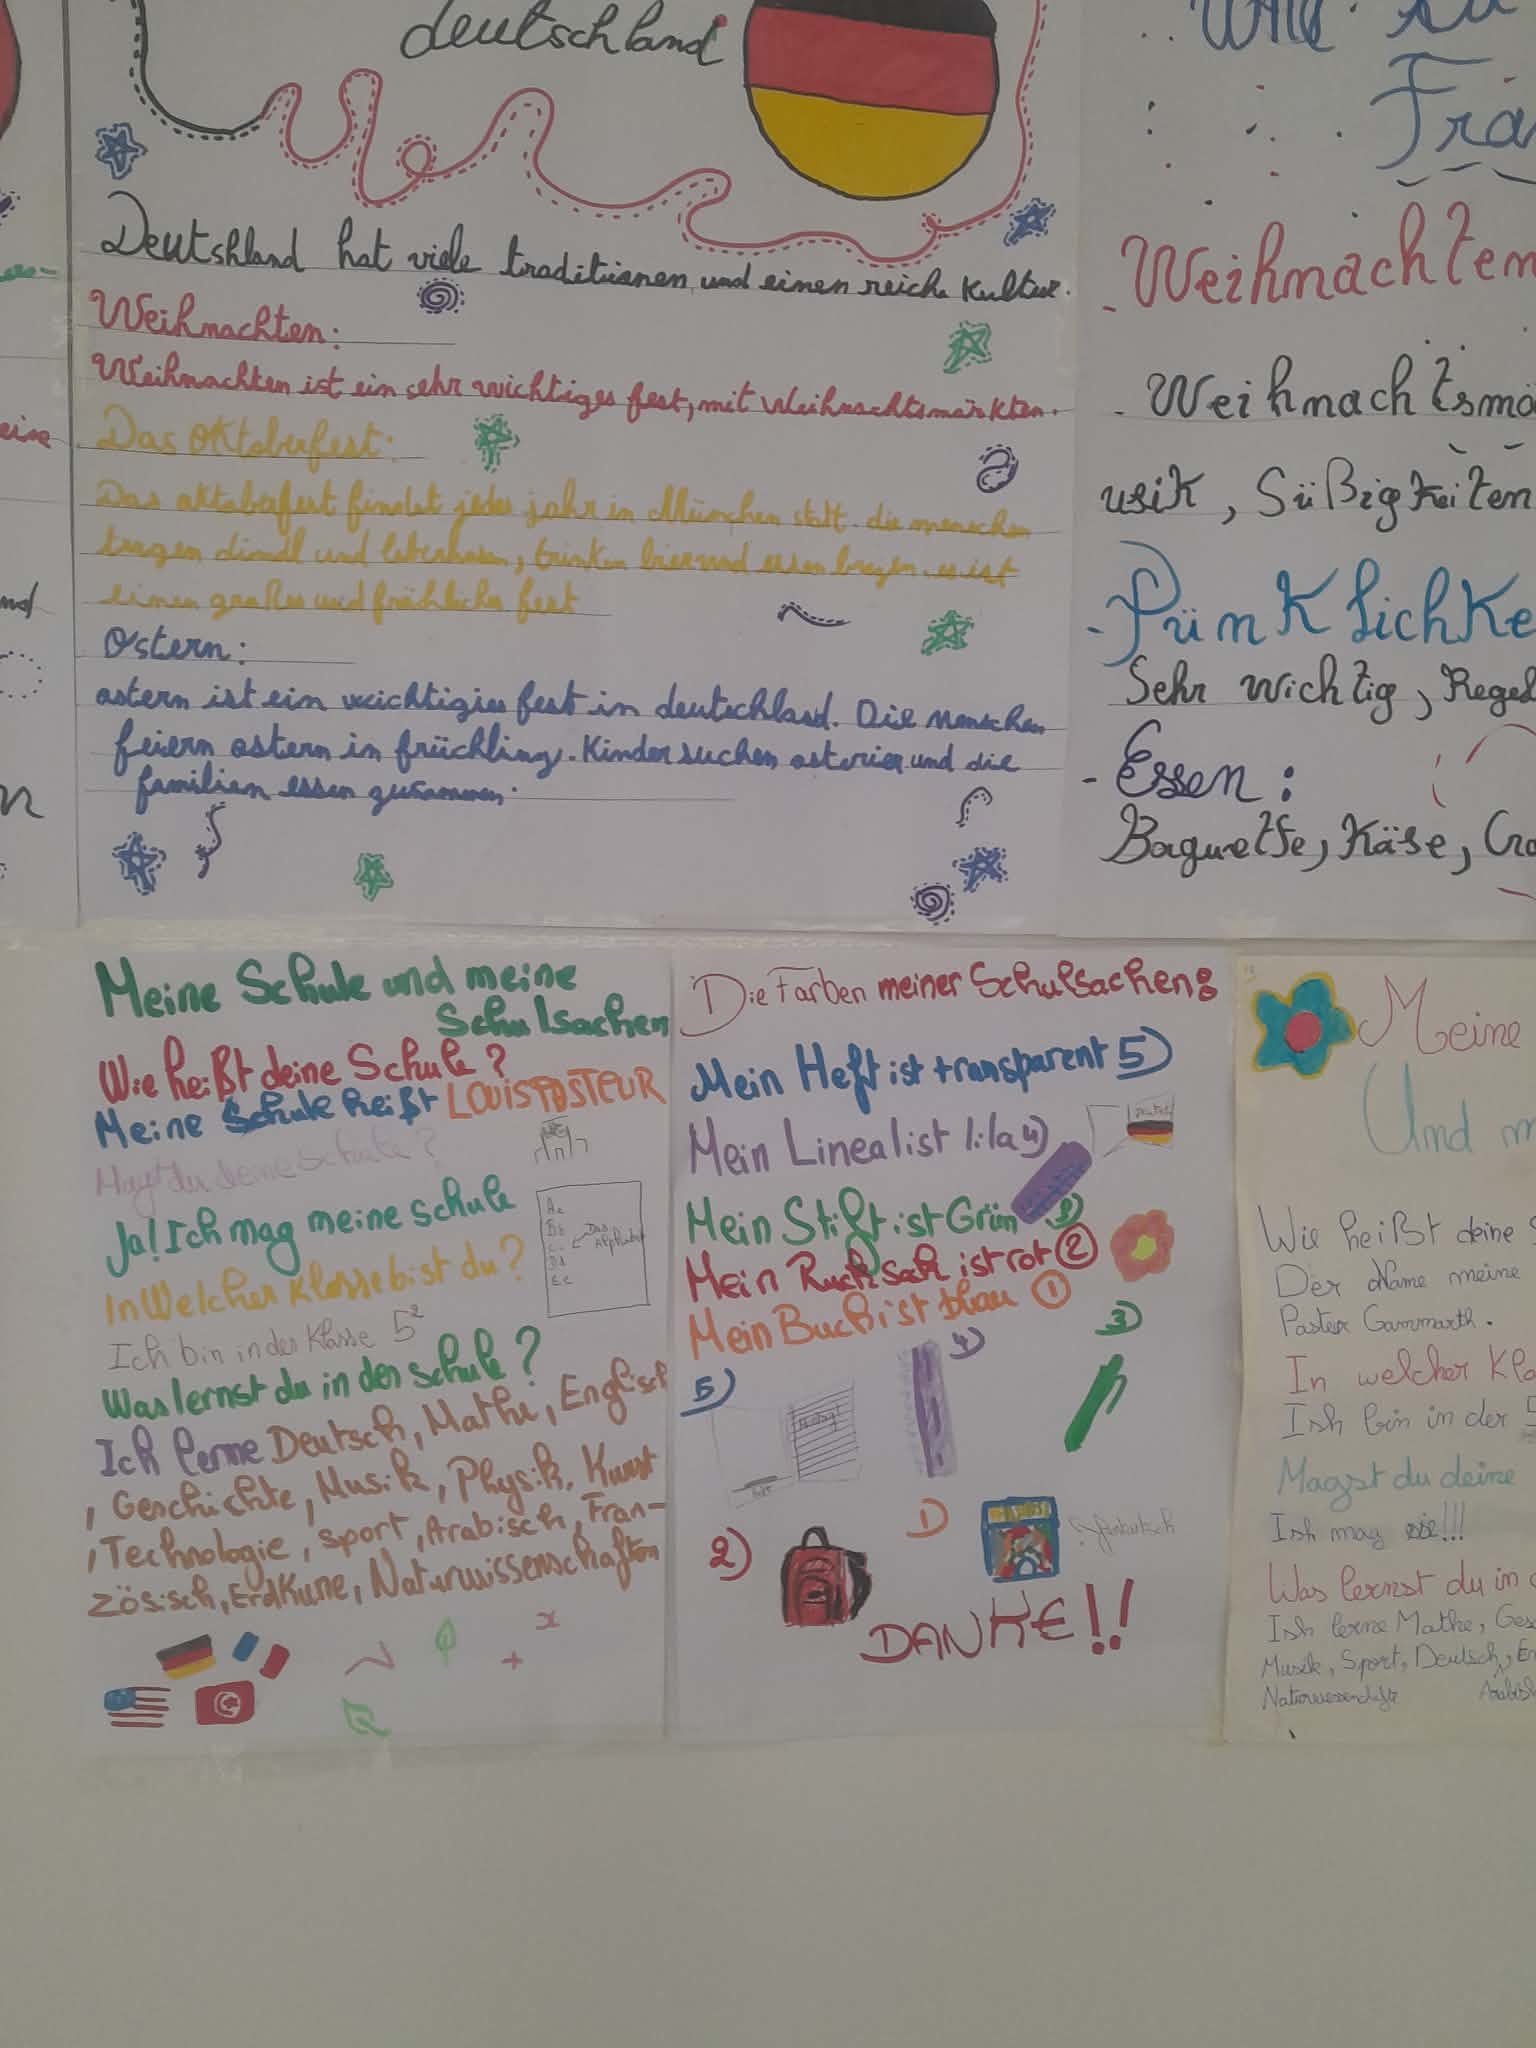 deutschland
Deutshland hat viele traditionen und einen reiche Kultur.
Weihnachten:
Weihnachten ist ein sehr wichtiges fest, mit Weihnachtsmärkten.
Das Oktoberfest:
Das oktoberfest findet jedes jahr in München statt. die menschen
tragen dirndl und lederhosen, trinken bier und essen brezen. es ist
einen großes und fröhliches fest
Ostern:
ostern ist ein wichtigies fest in deutschland. Die menschen
feiern ostern in früchling. Kinder suchen ostereier und die
familien essen zusammen.
Fra
- Weihnachten
. Weihnachtsmä
usik, Süßigkeiten
- Pünklichke
Sehr wichtig, Regel
- Essen:
Baguette, Käse, Cro
eine
nd
n
Meine Schule und meine
Schulsachen
Wie heißt deine Schule?
Meine Schule heißt LOUIS PASTEUR
Magst du deine Schule?
Ja! Ich mag meine schule
In Welcher Klasse bist du?
Ich bin in der Klasse 5²
Was lernst du in der schule?
Ich lerne Deutsch, Mathe, Englisch
, Geschichte, Musik, Physik, Kunst
, Technologie, sport, Arabisch, Fran-
zösisch, ErdKune, Naturwissenschaften
Das
Alphabet
Die Farben meiner Schulsachen:
Mein Heft ist transparent 5)
Mein Lineal ist lila 4)
Mein Stift ist Grün 3)
Mein Rucksack ist rot 2
Mein Buch ist blau 1
5)
4)
3)
2)
1)
DANKE!!
Meine
Und m
Wie heißt deine S
Der Name meine
Paster Gammarth.
In welcher Kla
Ish bin in der 5
Magst du deine
Ish mag sie!!!
Was lernst du in d
Ish lerne Mathe, Ges
Musik, Sport, Deutsch, En